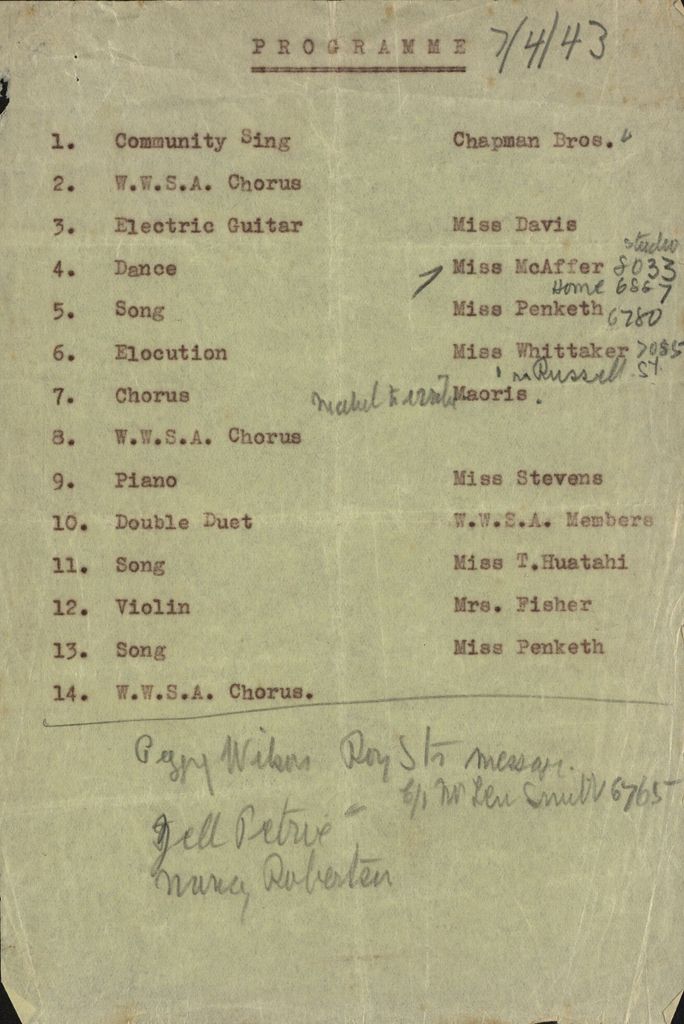 PROGRAMME 7/4/43
1. Community Sing Chapman Bros.
2. W.W.S.A. Chorus
3. Electric Guitar Miss Davis
studio
4. Dance Miss McAffer 8033
Home 6867
5. Song Miss Penketh 6780
6. Elocution Miss Whittaker 7085
Russell St.
7. Chorus Maoris.
8. W.W.S.A. Chorus
9. Piano Miss Stevens
10. Double Duet W.W.S.A. Members
11. Song Miss T.Huatahi
12. Violin Mrs. Fisher
13. Song Miss Penketh
14. W.W.S.A. Chorus.
Peggy Wilson Roy St message.
Len Smith 6765
Petrie
Nancy Roberton